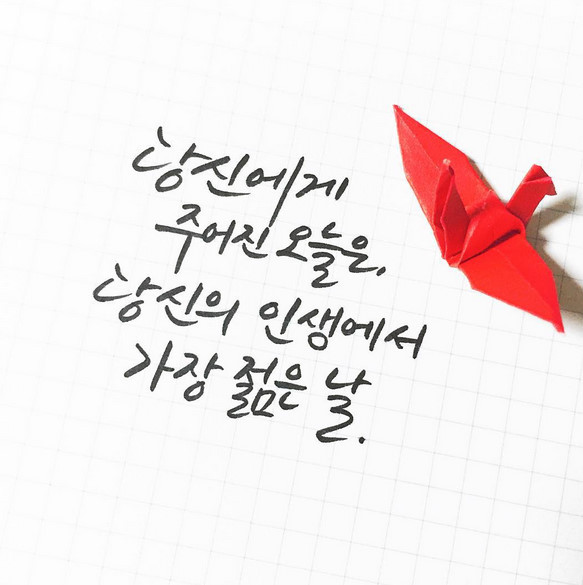 당신에게
주어진 오늘은,
당신의 인생에서
가장 젊은 날.